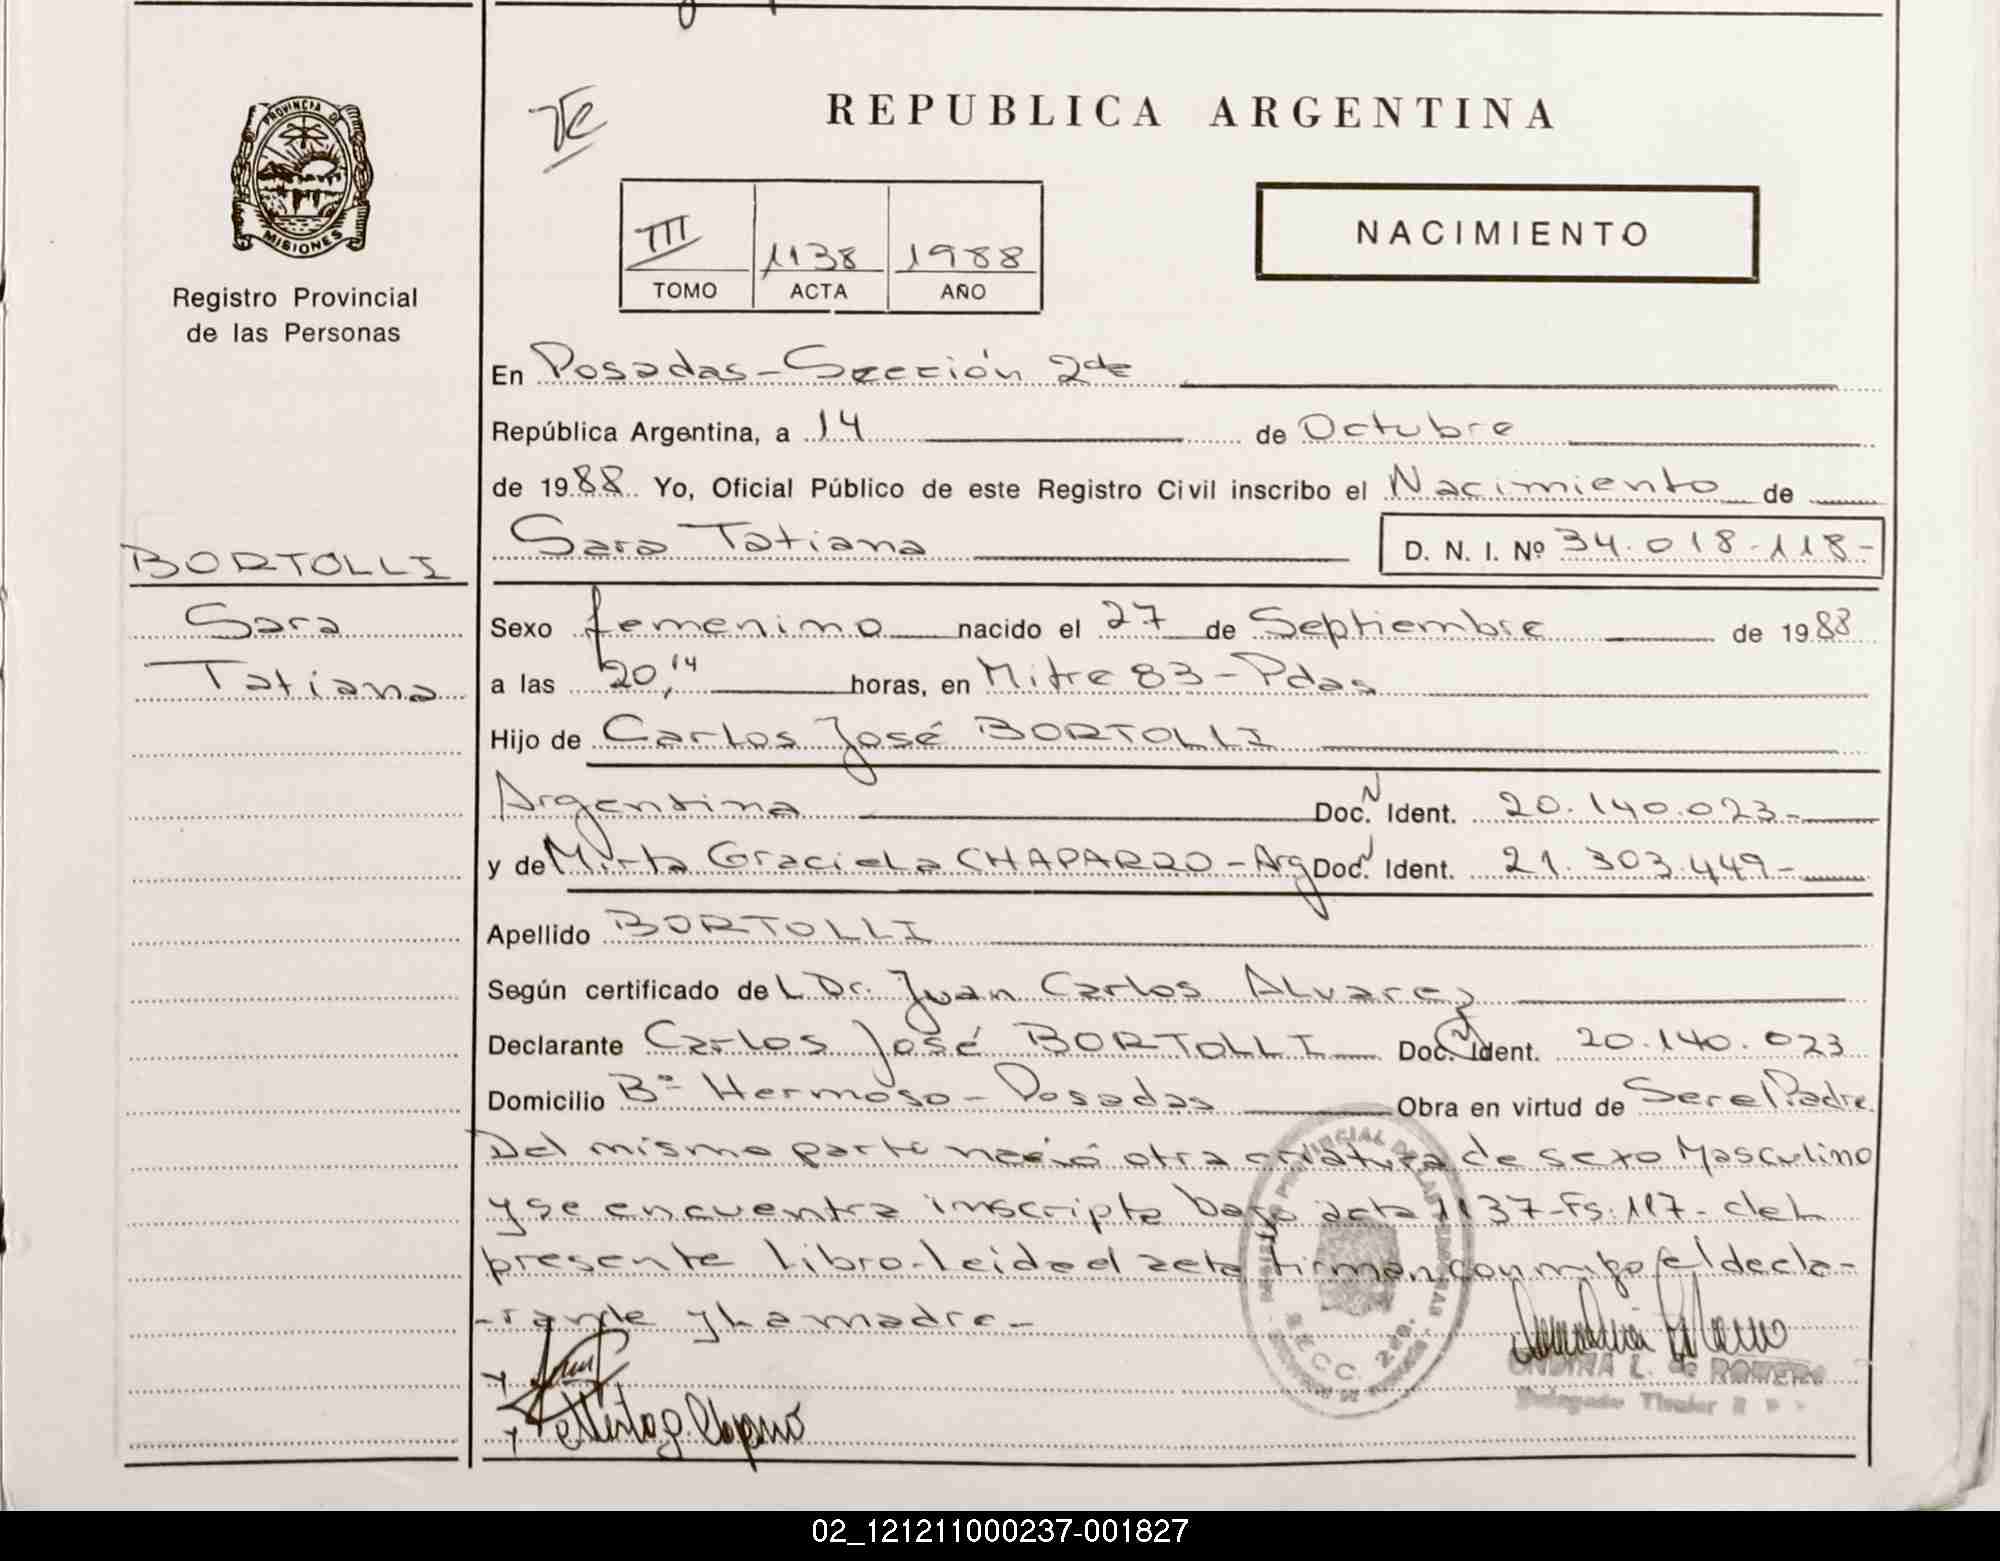 REPUBLICA ARGENTINA
PROVINCIA D
MISIONES
Registro Provincial
de las Personas
III 1138 1988
TOMO ACTA AÑO
NACIMIENTO
En Posadas - Sección 2da
República Argentina, a 14 de Octubre
de 1988 Yo, Oficial Público de este Registro Civil inscribo el Nacimiento de
Sara Tatiana D. N. I. Nº 34.018.118-
BORTOLLI
Sara
Tatiana
Sexo femenino nacido el 27 de Septiembre de 1988
a las 20,14 horas, en Mitre 83 - Pdas
Hijo de Carlos José BORTOLLI
Argentina Doc. Ident. 20.140.023-
y de Mirta Graciela CHAPARRO - Arg Doc. Ident. 21.303.449-
Apellido BORTOLLI
Según certificado del Dr. Juan Carlos Alvarez
Declarante Carlos José BORTOLLI Doc. Ident. 20.140.023
Domicilio Bº Hermoso - Posadas Obra en virtud de Ser el Padre.
Del mismo parto nació otra criatura de sexo Masculino
y se encuentra inscripta bajo acta 1137-Fs. 117- del
presente Libro-Leida el acta firman conmigo el decla-
-rante y La madre-
SECC. 2da.
ONDINA L. de ROMERO
Delegado Titular
02_121211000237-001827